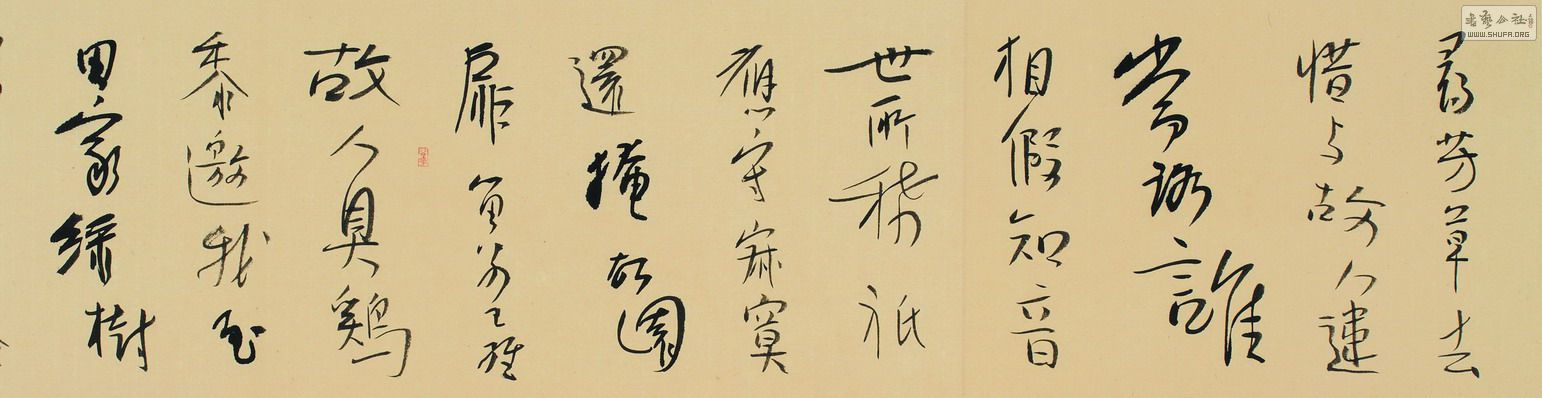 尋芳草去
惜与故人違
當路誰
相假知音
世所稀祇
應守寂寞
還掩故園
扉 留别王維
故人具鷄
黍邀我至
田家緑樹
書藝公社
WWW.SHUFA.ORG